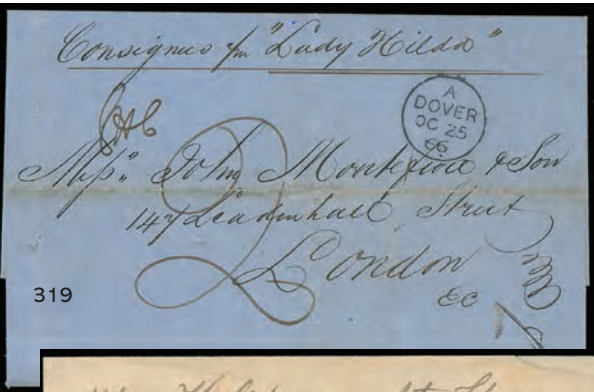 Consignees p "Lady Hilda"
A
DOVER
OC 25
66
2
Mess" John Montefiore & Son
147 Leadenhall Street
London
EC
319